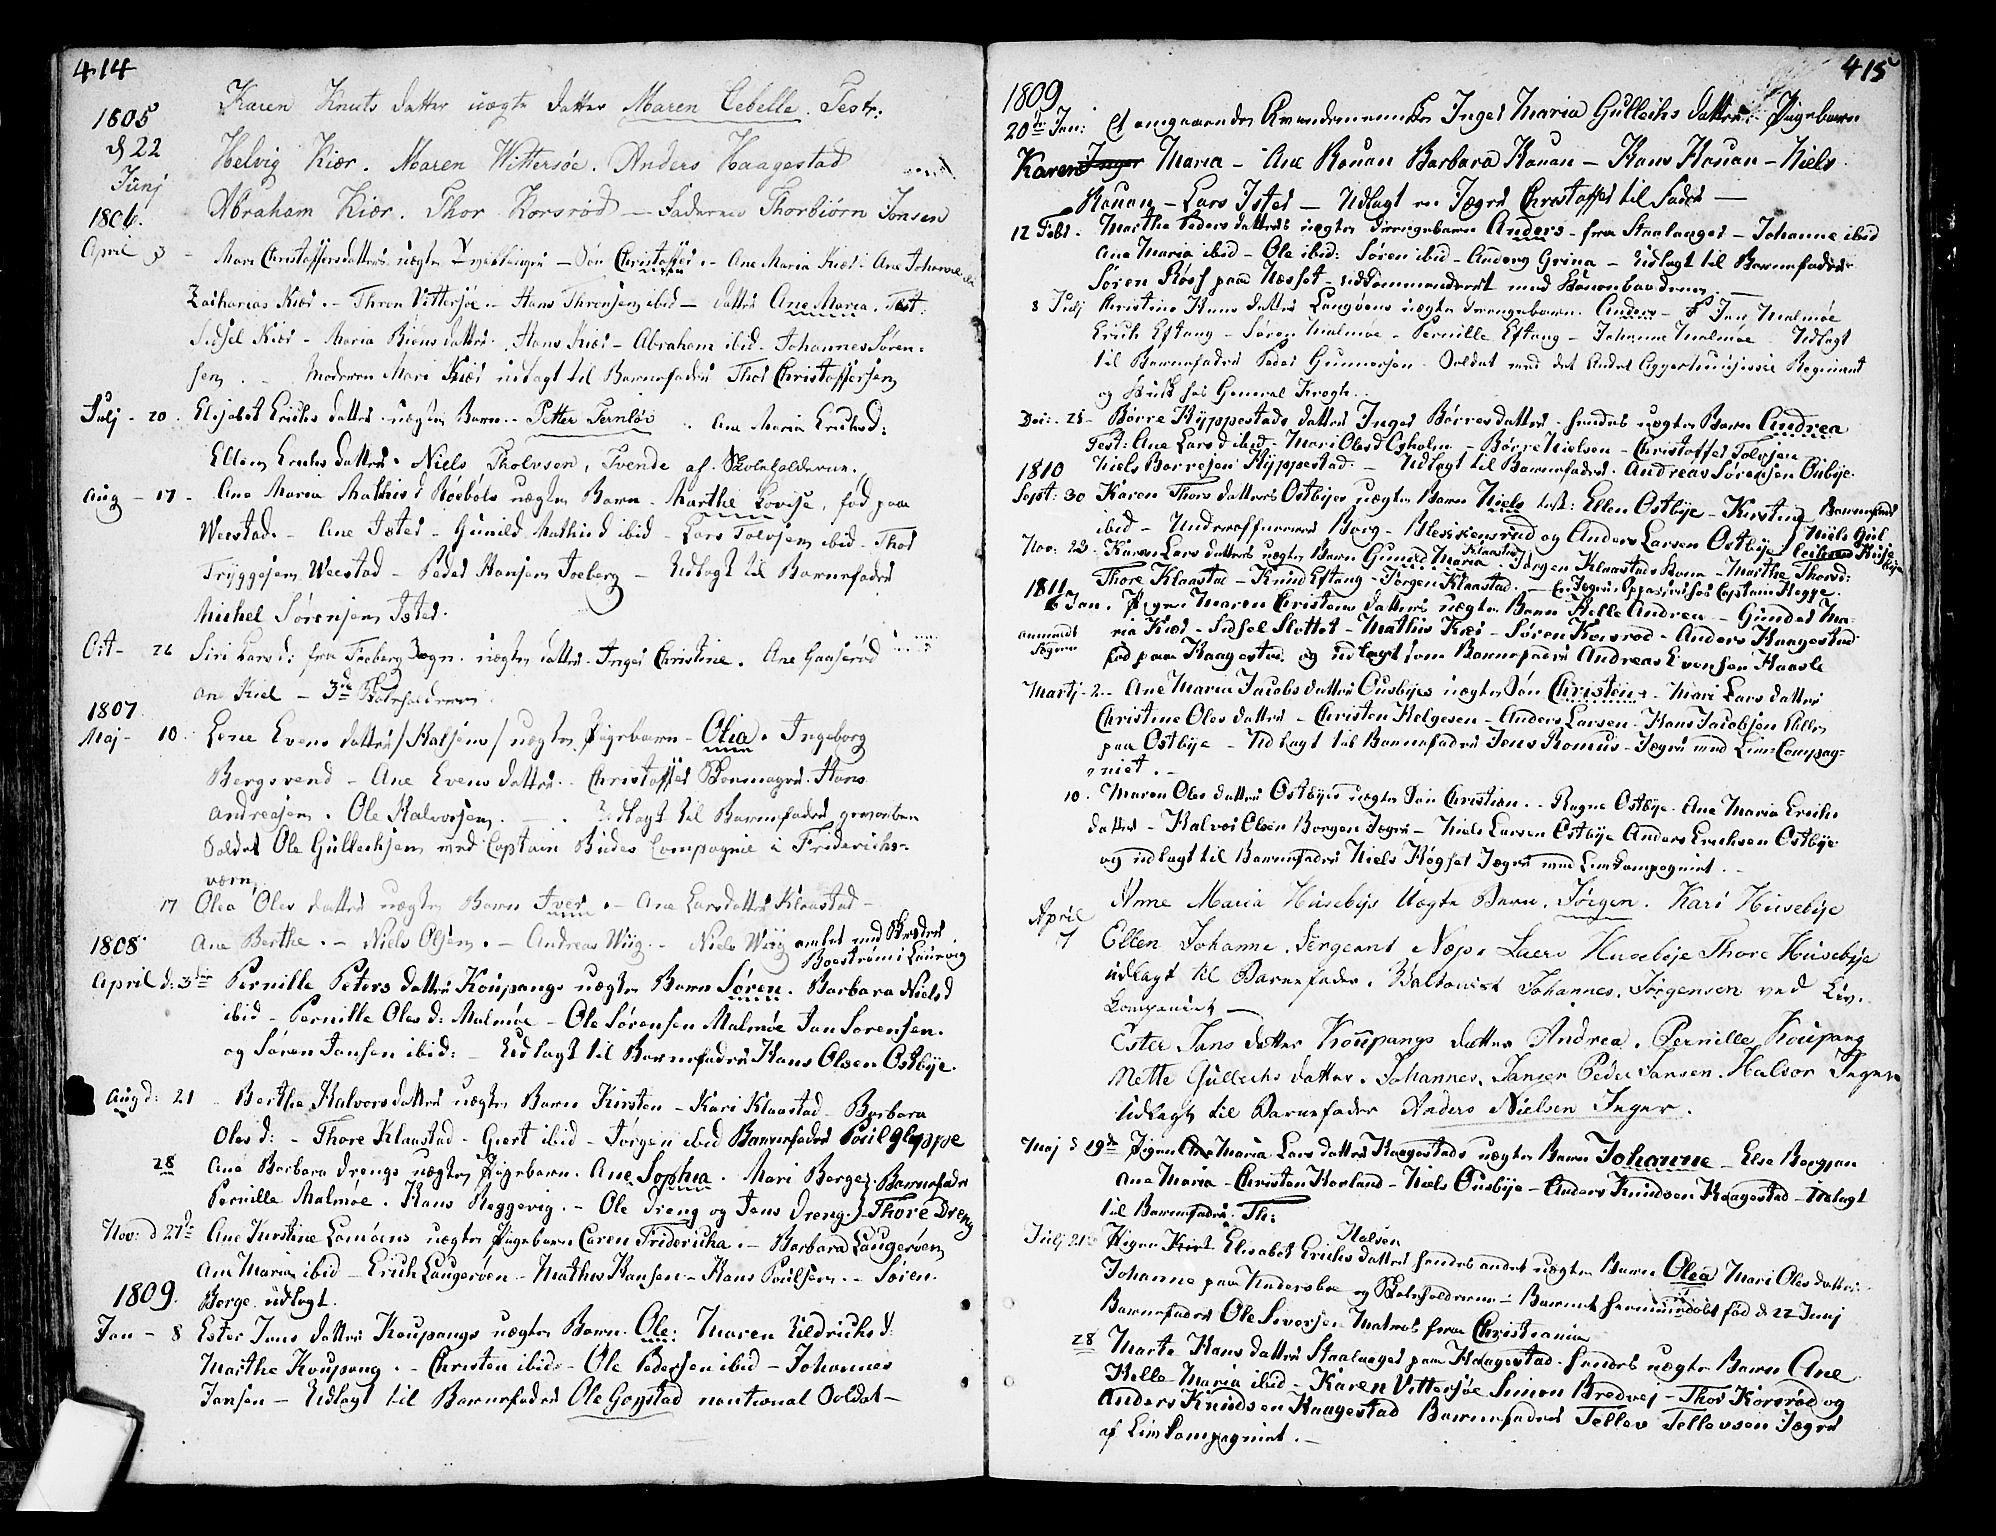 414
1805
d 22
Junj
Karen Knuts datter uægte datter Maren Cebelle. Testr:
Helvig Kiær. Maren Wittersøe. Anders Haagestad
1806.
Abraham Kiær. Thor Korsrød — Faderen Thorbiørn Jonsen
April 3 - Mari Christoffersdatters uægte Tvillinger — Søn Christoffer. - Ane Maria Kiær - Ane Johanne ibid
Zacharias Kiær. - Thron Vittersøe - Hans Thronsen ibid — datter Ane Maria. Test:
Sidsel Kiær - Maria Biørns datter. Hans Kiær - Abraham ibid. Johannes Søren-
sen. - Moderen Mari Kiær udlagt til Barnefader Thor Christoffersen
Julj - 20. Elisabet Erichs datters uægte Barn - Petter Ternløv .. Ane Maria Erichsd:
Ellen Erichs datter. Niels Tholvsen, Tvende af Skoleholderne.
Aug - 17 - Ane Maria Mathisd Røebøls uægte Barn - Marthe Lovise, fød paa
Weestad. - Ane Istre - Gunild Mathisd ibid - Lars Tolvsen ibid - Thor
Tryggesen Weestad - Peder Hansen Foeberg — Udlagt til Barnefader
Michel Sørensen Istre.
Oct - 26 Siri Larsd: fra Foeberg Sogn. uægte datter Inger Christine. Ane Gaaserød
an Kiel — 3de Skoleholderen
1807
Maj - 10. Lene Evens datters / Kalsens / uægte Pigebarn - Olia. Ingeborg
Bergsvend - Ane Evens datter. - Christoffer Skomager. Hans
Andreasen. Ole Halvorsen. — . Udlagt til Barnefader gevorben
Soldat Ole Gullichsen med Captain Budes Compagnie i Friderichs-
værn,
17 Olea Oles datters uægte Barn Iver. - Ane Larsdatter Klaastad -
1808. Ane Berthe. - Niels Olsen. - Andreas Wiig - Niels Wiig
Boestrøm i Laurvig
April d: 3die Pernille Peters datters Koupangs uægte Barn Søren. Barbara Nielsd
ibid - Pernille Olesd: Malmøe - Ole Sørensen Malmøe Jan Sørensen.
og Søren Jansen ibid: — Udlagt til Barnefader Hans Olsen Østbye.
Aug d: 21 - Berthe Halvorsdatters uægte Barn Kirsten - Kari Klaastad - Barbara
Olesd: - Thore Klaastad - Giert ibid - Jørgen ibid Barnefader Poul Glyppe
28 Ane Barbara Drengs uægte Pigebarn. Ane Sophia. Mari Berge Barnefader
Pernille Malmøe. Hans Reggevig. - Ole Dreng og Jens Dreng. Thore Dreng
Nov: d 27de Ane Kirstine Lamøens uægte Pigebarn Caren Friderica. - Barbara Laugerøen
Ane Maria ibid - Erich Laugerøen - Mathis Hansen - Hans Poulsen. - Søren
1809. Berge udlagt.
Jan - 8 Ester Jans datters Koupangs uægte Barn. Ole: Maren Uldrichsd:
Marthe Koupang. - Christen ibid - Ole Pedersen ibid - Johannes
Jansen — Udlagt til Barnefader Ole Gogstad national Soldat —
415
1809
20de Jan: Et omgaaendes Qvindemenneskes Inger Maria Gullichs datters Pigebarn
Karen Inger Maria - Ane Rouan Barbara Rouan - Hans Rouan - Niels
Rouan - Lars Istre - Udlagt en Jæger Christoffer til Fader —
12 Febr. Marthe Peders datters uægte Drengebarn Anders - fra Staalauger - Johanne ibid
Ane Maria ibid - Ole ibid: Søren ibid - Anders Grina - Udlagt til Barnefader
Søren Røes paa Næsset - udkommanderet med Kanonbaadene. —
8 Julj Christine Hans datters Langøens uægte Drengebarn. Anders - Jan Malmøe
Erich Eftang - Søren Malmøe - Pernille Eftang - Johanne Malmøe. Udlagt
til Barnefader Peder Gunnersen. Soldat med det Andet Aggershuusiske Regiment
og Kusk hos General Krogh.
Dec: 25 - Børre Hyppestads datter Inger Børresdatter. hendes uægte Barn Andrea
Test: Ane Larsd ibid - Mari Olesd Ceholm - Børre Nielsen - Christoffer Tolvsen
1810 Niels Børresen Hyppestad. - Udlagt til Barnefader. Andreas Sørensen Ousbye
Sept: 30 Karen Thors datters Østbyes uægte Barn Niels test: Ellen Østbye - Kirstine
ibid - Underofficeren Borg - Bleskensrud og Anders Larsen Østbye
Barnefader Niels Gul- Huse-
Nov: 23. Karen Lars datters uægte Barn Gunild Maria Klaastad. Jørgen Klaastads Kone - Marthe Thorsd:
1811 Thore Klaastad - Knud Eftang - Jørgen Klaastad. - En Jæger Oppasser hos Captain Hegge.
6 Jan. Pigen Maren Christens datters uægte Barn Helle Andrea - Gunder Ma-
anmeldt ria Kiær - Sidsel Slottet - Mathis Kiær - Søren Korsrød - Anders Haagestad
fød paa Haagestad og udlagt som Barnefader Andreas Evensen Haasle
Martj - 2 - Ane Maria Jacobs datters Ousbyes uægte Søn Christen. - Mari Lars datter
Christine Oles datter - Christen Helgesen - Anders Larsen - Hans Jacobsen alle
paa Østbye - Udlagt til Barnefader Jens Romus - Jæger med Liv-Compag-
niet. -
10. Maren Oles datters Østbyes uægte Søn Christian. - Ragne Østbye. Ane Maria Erichs
datter - Halvor Olsen Borgen Jæger - Niels Larsen Østbye Anders Erichsen Østbye
og udlagt til Barnefader Niels Høgset Jæger med Livkompagniet. -
April 7 Anne Maria Husebyes Uægte Barn. Jørgen. Kari Husebye
Ellen Johanne. Sergeant Næps Laers Husebye Thore Husebye
udlagt til Barnefader. Johannes Jørgensen ved Liv-
kompaniet —
Ester Jans datter Koupangs datter Andrea. Pernille Koupang
Mette Gullichs datter. Johannes Jansen Peder Jansen. Halvor Inger
Udlagt til Barnefader Anders Nielsen Inger.
Maj d 19de Pigen Ane Maria Lars datters Haagestads uægte Barn Johanne - Else Bergan
Ane Maria - Christen Horland - Niels Ousbye - Anders Knudsen Haagestad - Udlagt
til Barnefader. Th:
Julj 21 Pigen Kirst Elisabet Erichs datters Halsen hendes andet uægte Barn Olea Mari Oles datter:
Johanne paa Undersboe og Skoleholderne - Barnet hiemmedøbt fød d 22 Junj
Barnefader Ole Siversen Matros fra Christiania
28 Marte Hans datters Staalauger paa Haagestad. hendes uægte Barn Ane
Helle Maria ibid - Karen Vittersøe Simon Bredvej - Thor Korsrød og
Anders Knudsen Haagestad Barnefader Tellev Tellevsen Jæger
af Livkompagniet. —